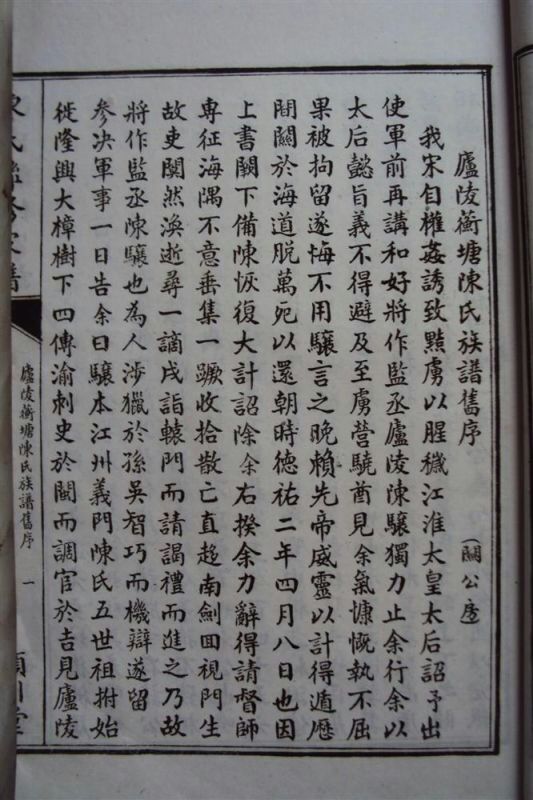 廬陵蘅塘陳氏族譜舊序
我宋自權姦誘致黠虜以腥穢江淮太皇太后詔予出
使軍前再講和好將作監丞廬陵陳驤獨力止余行余以
太后懿旨義不得避及至虜營驍酋見余氣慷慨執不屈
果被拘留遂悔不用驤言之晚賴先帝威靈以計得遁歷
間關於海道脫萬死以還朝時德祐二年四月八日也因
上書闕下備陳恢復大計詔除余右揆余力辭得請督師
專征海隅不意垂集一蹶收拾散亡直趍南劍回視門生
故吏闃然渙逝尋一謫戍詣轅門而請謁禮而進之乃故
將作監丞陳驤也為人涉獵於孫吳智巧而機辯遂留
參決軍事一日告余曰驤本江州義門陳氏五世祖拊始
徙隆興大樟樹下四傳渝刺史於閩而調官於吉見廬陵
廬陵蘅塘陳氏族譜舊序 一